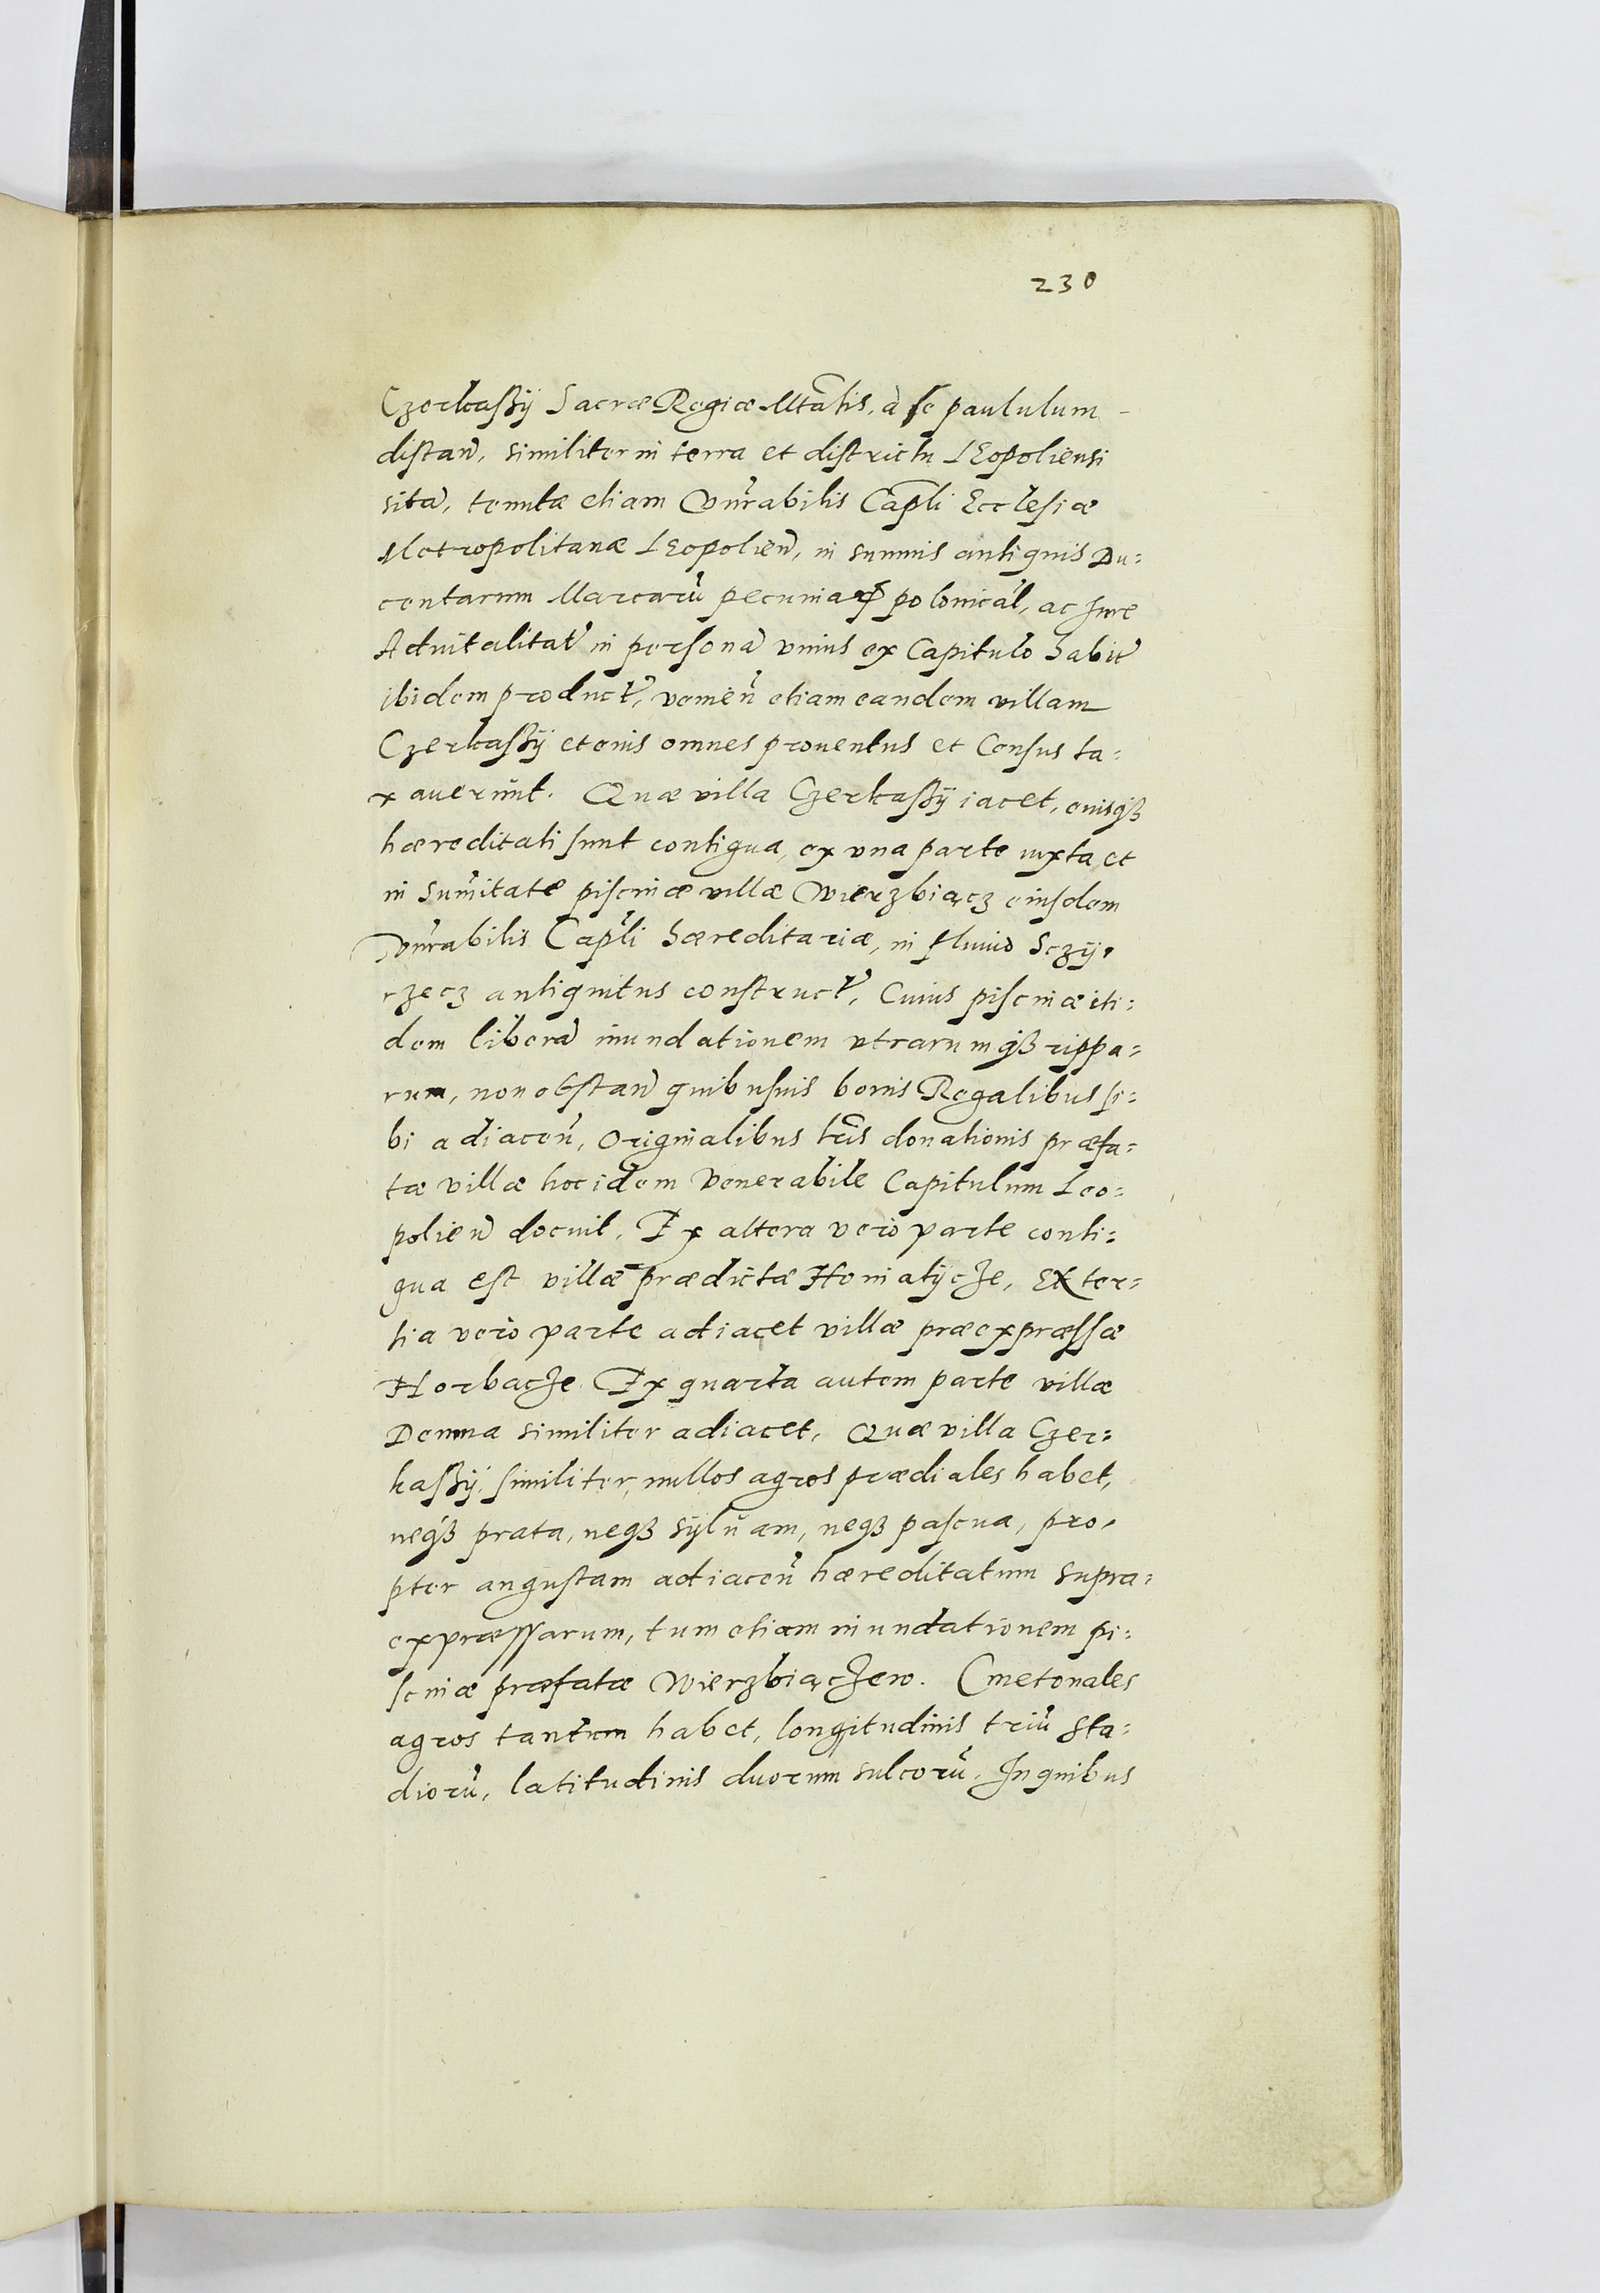 230
Czerkaßÿ Sacræ Regiæ Mtatis, à se paululum
distan̄, similiter in terra et districtu LEopoliensi
sitā, tenutæ etiam Vnrabilis Capli Ecclesiæ
Metropolitanæ LEopolien̄, in summis antiquis Du=
centarum Marcarū pecuniaꝝ polonical, ac Jure
Aduitalitat̄ in personā vnius ex Capitulo habit̄
ibidem product̄, venien̄ etiam eandem villam
Czerkaßÿ et eius omnes prouentus et Census ta=
xauerunt. Quæ villa Czerkaßÿ iacet, eiusqȝ
hæreditati sunt contigua, ex vna parte iuxta, et
in sum̄itate piscinæ villæ Wierzbiącz eiusdem
Vnrabilis Capli hæreditariæ, in fluuio Sczÿ=
rzecz antiquitus construct̄, Cuius piscinæ iti=
dem liberā inundationem vtrarumqȝ rippa=
rum, non obstan̄ quibusuis bonis Regalibus si=
bi adiacen̄, originalibus lris donationis præfa=
tæ villæ hoc idem Venerabile Capitulum Leo=
polien̄ docuit. Ex altera vero parte conti=
gua est villæ prædictæ Honiatÿcze, Ex ter=
tia vero parte adiacet villæ præexpræssæ
Horbacze. Ex quarta autem parte villæ
Demna similiter adiacet, Quæ villa Czer=
kaßÿ, similiter, nullos agros prædiales habet,
neqȝ prata, neqȝ sÿluam, neqȝ pascua, pro=
pter angustam adiacen̄ hæreditatum supra=
expræssarum, tum etiam inundationem pi=
scinæ præfatæ Wierzbiączew. Cmetonales
agros tantum habet, longitudinis triū sta=
diorū, latitudinis duorum sulcorū. In quibus